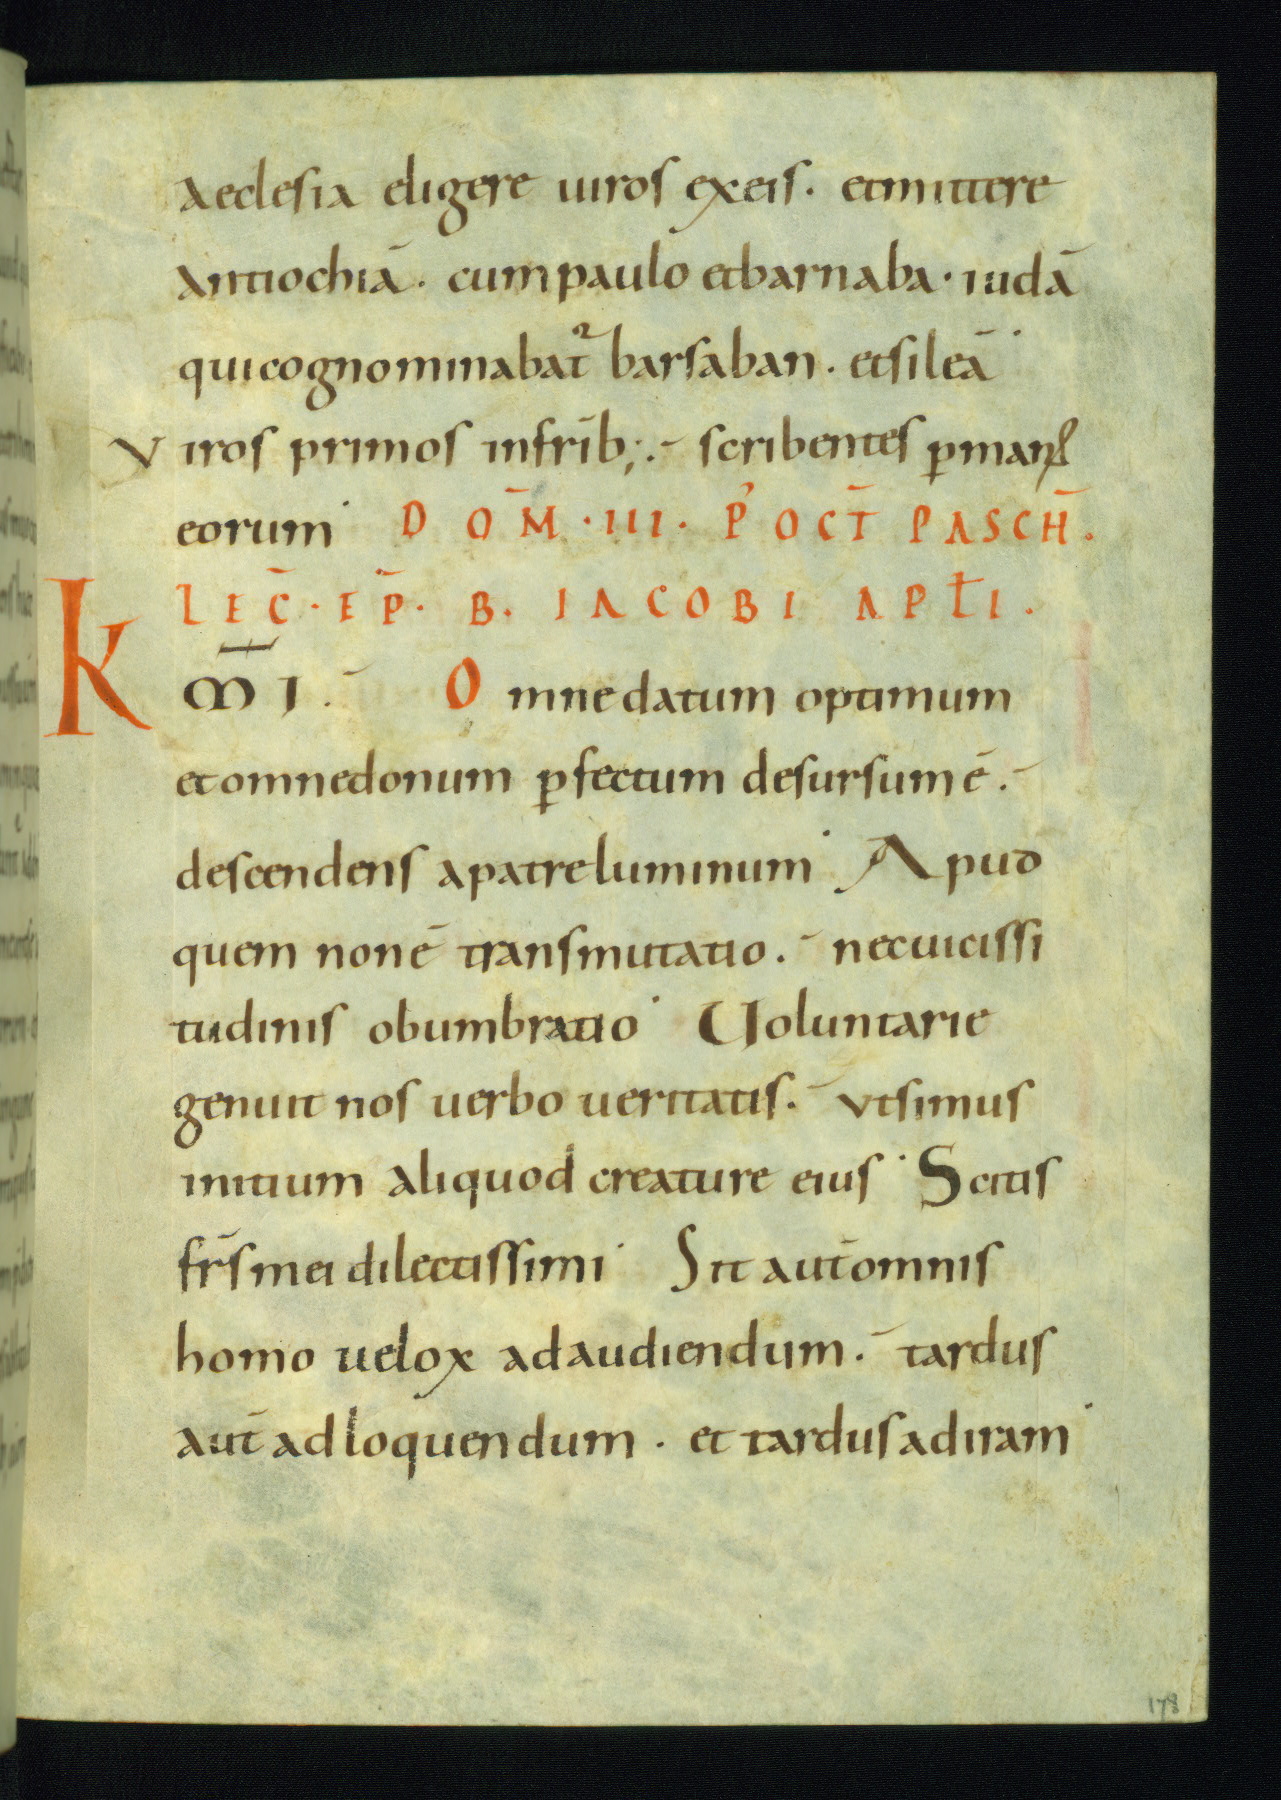 aeclesia eligere uiros exeis. etmittere
antiochiā. cumpaulo etbarnaba. iudā
quicognominabat᷑ barsaban. etsileā
Viros primos infrīb; scribentes ꝑmanꝰ
eorum DOM̄ ·III· P' OCT̄ PASCH̄.
LEC̄. EP̄. B. IACOBI APŁI.
K M̄I. Omnedatum optimum
etomnedonum ꝑfectum desursumē.
descendens apatreluminum Apud
quem nonē transmutatio. necuicissi
tudinis obumbratio Uoluntarie
genuit nos uerbo ueritatis. vtsimus
initium aliquod creature eius Scitis
fr̄smei dilectissimi Sit aut̄omnis
homo uelox adaudiendum. tardus
aut̄ adloquendum. et tardusadiram
178